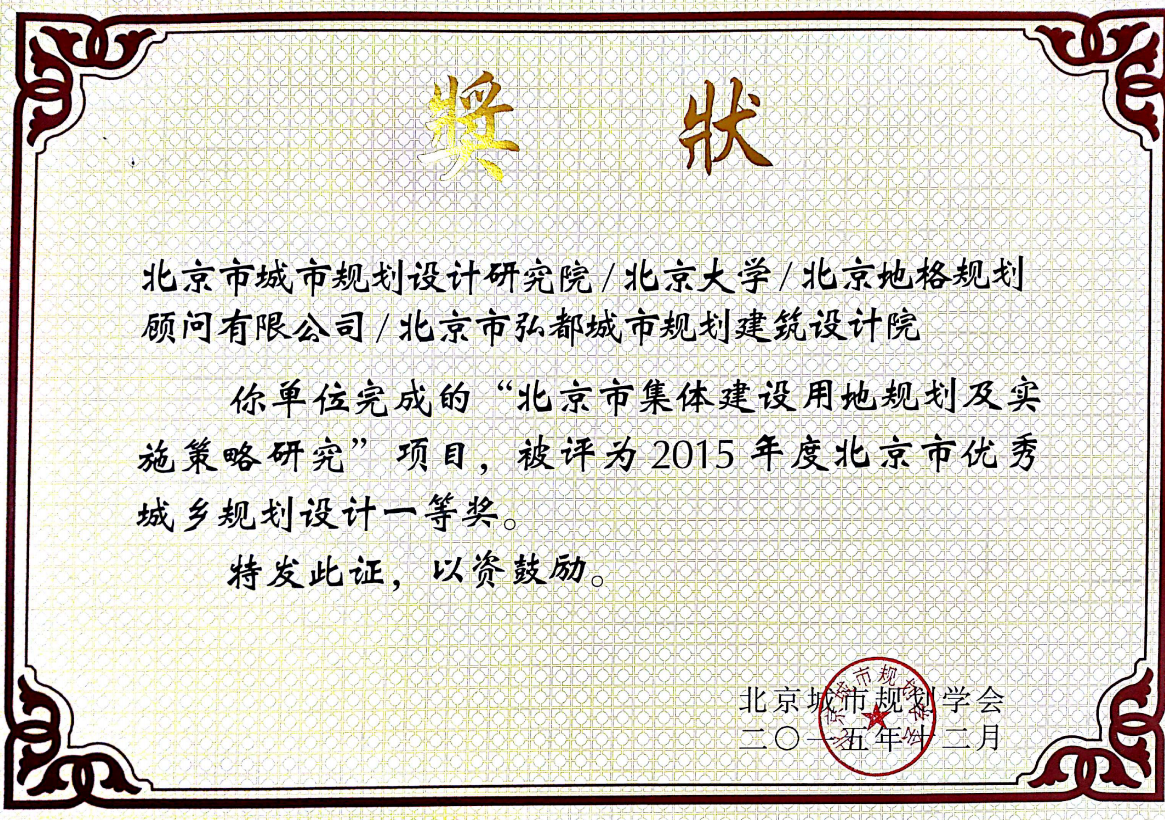 獎 狀
北京市城市规划设计研究院/北京大学/北京地格规划
顾问有限公司/北京市弘都城市规划建筑设计院
你单位完成的“北京市集体建设用地规划及实
施策略研究”项目，被评为2015年度北京市优秀
城乡规划设计一等奖。
特发此证，以资鼓励。
北京城市规划学会
二〇一五年十二月
北京城市规划学会